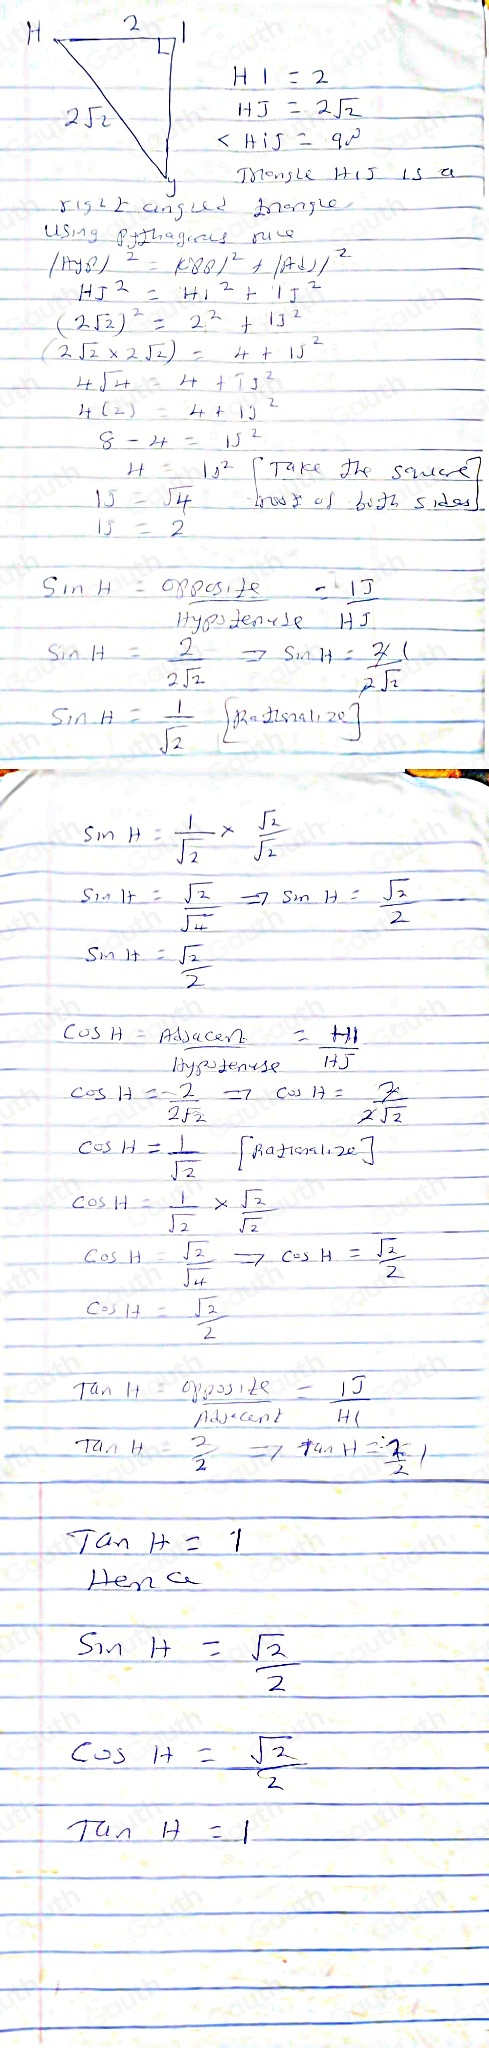 H 2 I
2√2
J
HI = 2
HJ = 2√2
< HiJ = 90°
Triangle HIJ is a
right angled triangle
Using pythagoras rule
/Hyp/² = /opp/² + /Adj/²
HJ² = HI² + IJ²
(2√2)² = 2² + IJ²
(2√2 × 2√2) = 4 + IJ²
4√4 = 4 + IJ²
4(2) = 4 + IJ²
8 - 4 = IJ²
4 = IJ² [Take the square
IJ = √4 root of both sides]
IJ = 2
Sin H = opposite/Hypotenuse = IJ/HJ
Sin H = 2/2√2 => Sin H = 2 1/2√2
Sin H = 1/√2 [Rationalize]
Sin H = 1/√2 × √2/√2
Sin H = √2/√4 => Sin H = √2/2
Sin H = √2/2
Cos H = Adjacent/Hypotenuse = HI/HJ
Cos H = 2/2√2 => Cos H = 2/2√2
Cos H = 1/√2 [Rationalize]
Cos H = 1/√2 × √2/√2
Cos H = √2/√4 => Cos H = √2/2
Cos H = √2/2
Tan H = opposite/Adjacent = IJ/HI
Tan H = 2/2 => Tan H = 2/2 1
Tan H = 1
Hence
Sin H = √2/2
Cos H = √2/2
Tan H = 1